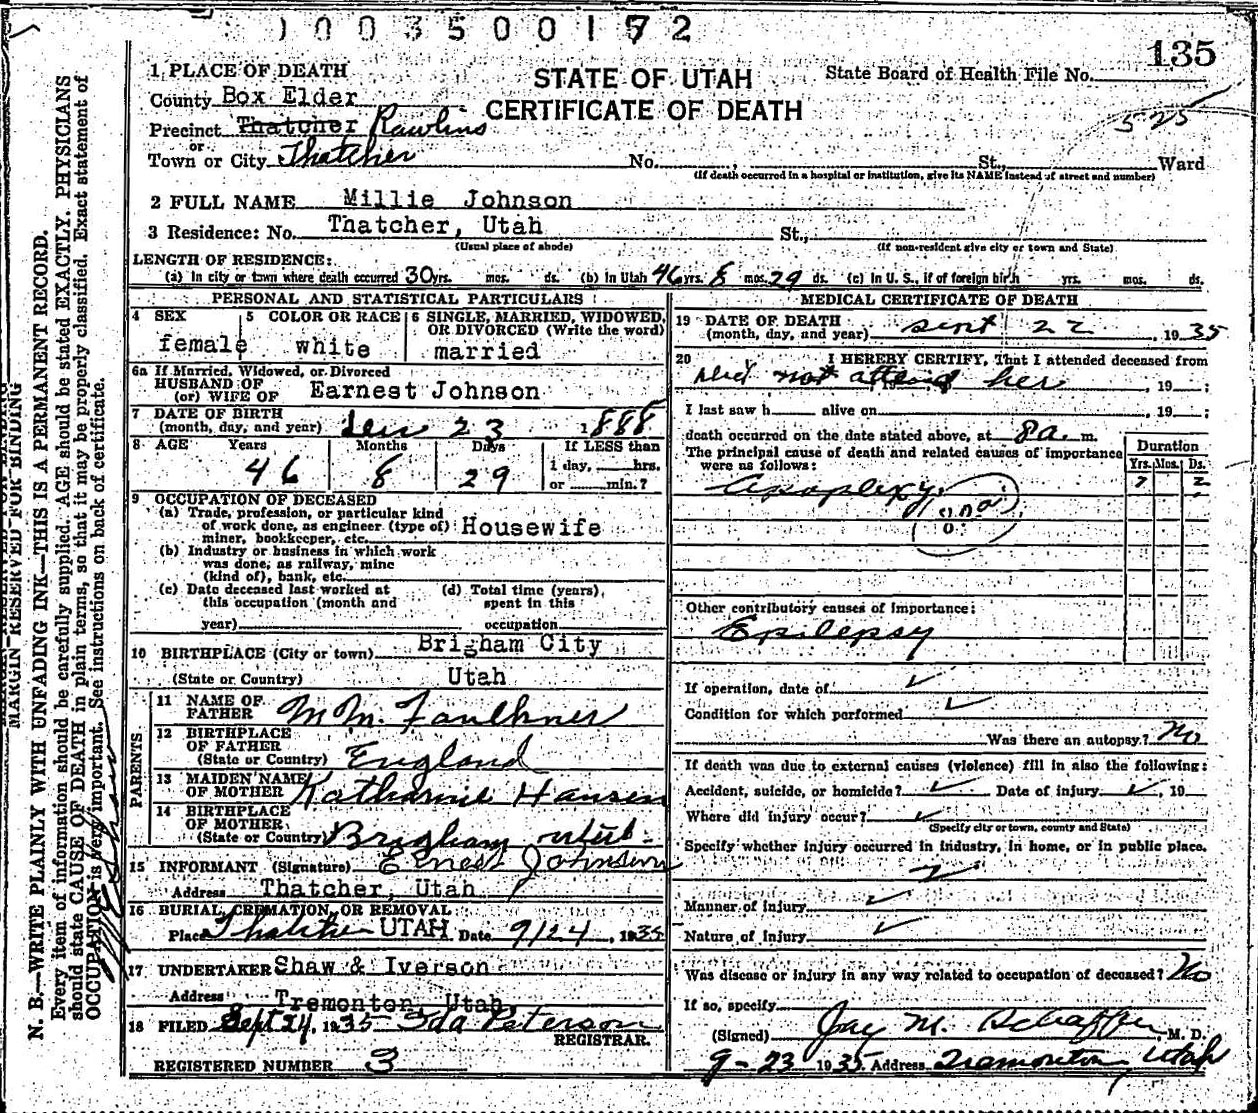 1003500172
135
1 PLACE OF DEATH
STATE OF UTAH
State Board of Health File No.
County Box Elder
CERTIFICATE OF DEATH
525
Precinct Thatcher Rawlins
or
Town or City Thatcher No. , St., Ward
(If death occurred in a hospital or institution, give its NAME instead of street and number)
2 FULL NAME Millie Johnson
3 Residence: No. Thatcher, Utah St.,
(Usual place of abode) (If non-resident give city or town and State)
LENGTH OF RESIDENCE:
(a) In city or town where death occurred 30 yrs. mos. ds. (b) In Utah 46 yrs. 8 mos. 29 ds. (c) In U. S., if of foreign birth yrs. mos. ds.
PERSONAL AND STATISTICAL PARTICULARS
4 SEX 5 COLOR OR RACE 6 SINGLE, MARRIED, WIDOWED, OR DIVORCED (Write the word)
female white married
6a If Married, Widowed, or Divorced
HUSBAND OF
(or) WIFE OF Earnest Johnson
7 DATE OF BIRTH
(month, day, and year) 23 1888
8 AGE Years Months Days If LESS than
46 8 29 1 day, hrs.
or min.?
9 OCCUPATION OF DECEASED
(a) Trade, profession, or particular kind
of work done, as engineer (type of)
miner, bookkeeper, etc. Housewife
(b) Industry or business in which work
was done, as railway, mine
(kind of), bank, etc.
(c) Date deceased last worked at
this occupation (month and
year)
(d) Total time (years),
spent in this
occupation
10 BIRTHPLACE (City or town) Brigham City
(State or Country) Utah
PARENTS
11 NAME OF
FATHER M M. Faulkner
12 BIRTHPLACE
OF FATHER
(State or Country) England
13 MAIDEN NAME
OF MOTHER Katharine Hansen
14 BIRTHPLACE
OF MOTHER
(State or Country) Brigham utah
15 INFORMANT (Signature) Ernest Johnson
Address Thatcher, Utah
16 BURIAL, CREMATION, OR REMOVAL
Place Thatcher UTAH Date 9/24, 1935
17 UNDERTAKER Shaw & Iverson
Address Tremonton, Utah
18 FILED Sept 24, 1935 Ida Peterson
REGISTRAR.
REGISTERED NUMBER 3
MEDICAL CERTIFICATE OF DEATH
19 DATE OF DEATH
(month, day, and year) sept 22, 1935
20 I HEREBY CERTIFY, That I attended deceased from
did not attend her, 19 ;
I last saw h alive on , 19 ;
death occurred on the date stated above, at 8 a. m.
The principal cause of death and related causes of importance
were as follows:
Duration
Yrs. Mos. Ds.
Apoplexy
Other contributory causes of importance:
Epilepsy
If operation, date of
Condition for which performed
Was there an autopsy? No
If death was due to external causes (violence) fill in also the following:
Accident, suicide, or homicide? Date of injury , 19
Where did injury occur?
(Specify city or town, county and State)
Specify whether injury occurred in industry, in home, or in public place.
Manner of injury
Nature of injury
Was disease or injury in any way related to occupation of deceased? No
If so, specify
(Signed) Jay M. Schaffer, M. D.
9-23 1935 Address Tremonton, Utah
MARGIN RESERVED FOR BINDING
N. B.—WRITE PLAINLY WITH UNFADING INK—THIS IS A PERMANENT RECORD.
Every item of information should be carefully supplied. AGE should be stated EXACTLY. PHYSICIANS
should state CAUSE OF DEATH in plain terms, so that it may be properly classified. Exact statement of
OCCUPATION is very important. See instructions on back of certificate.